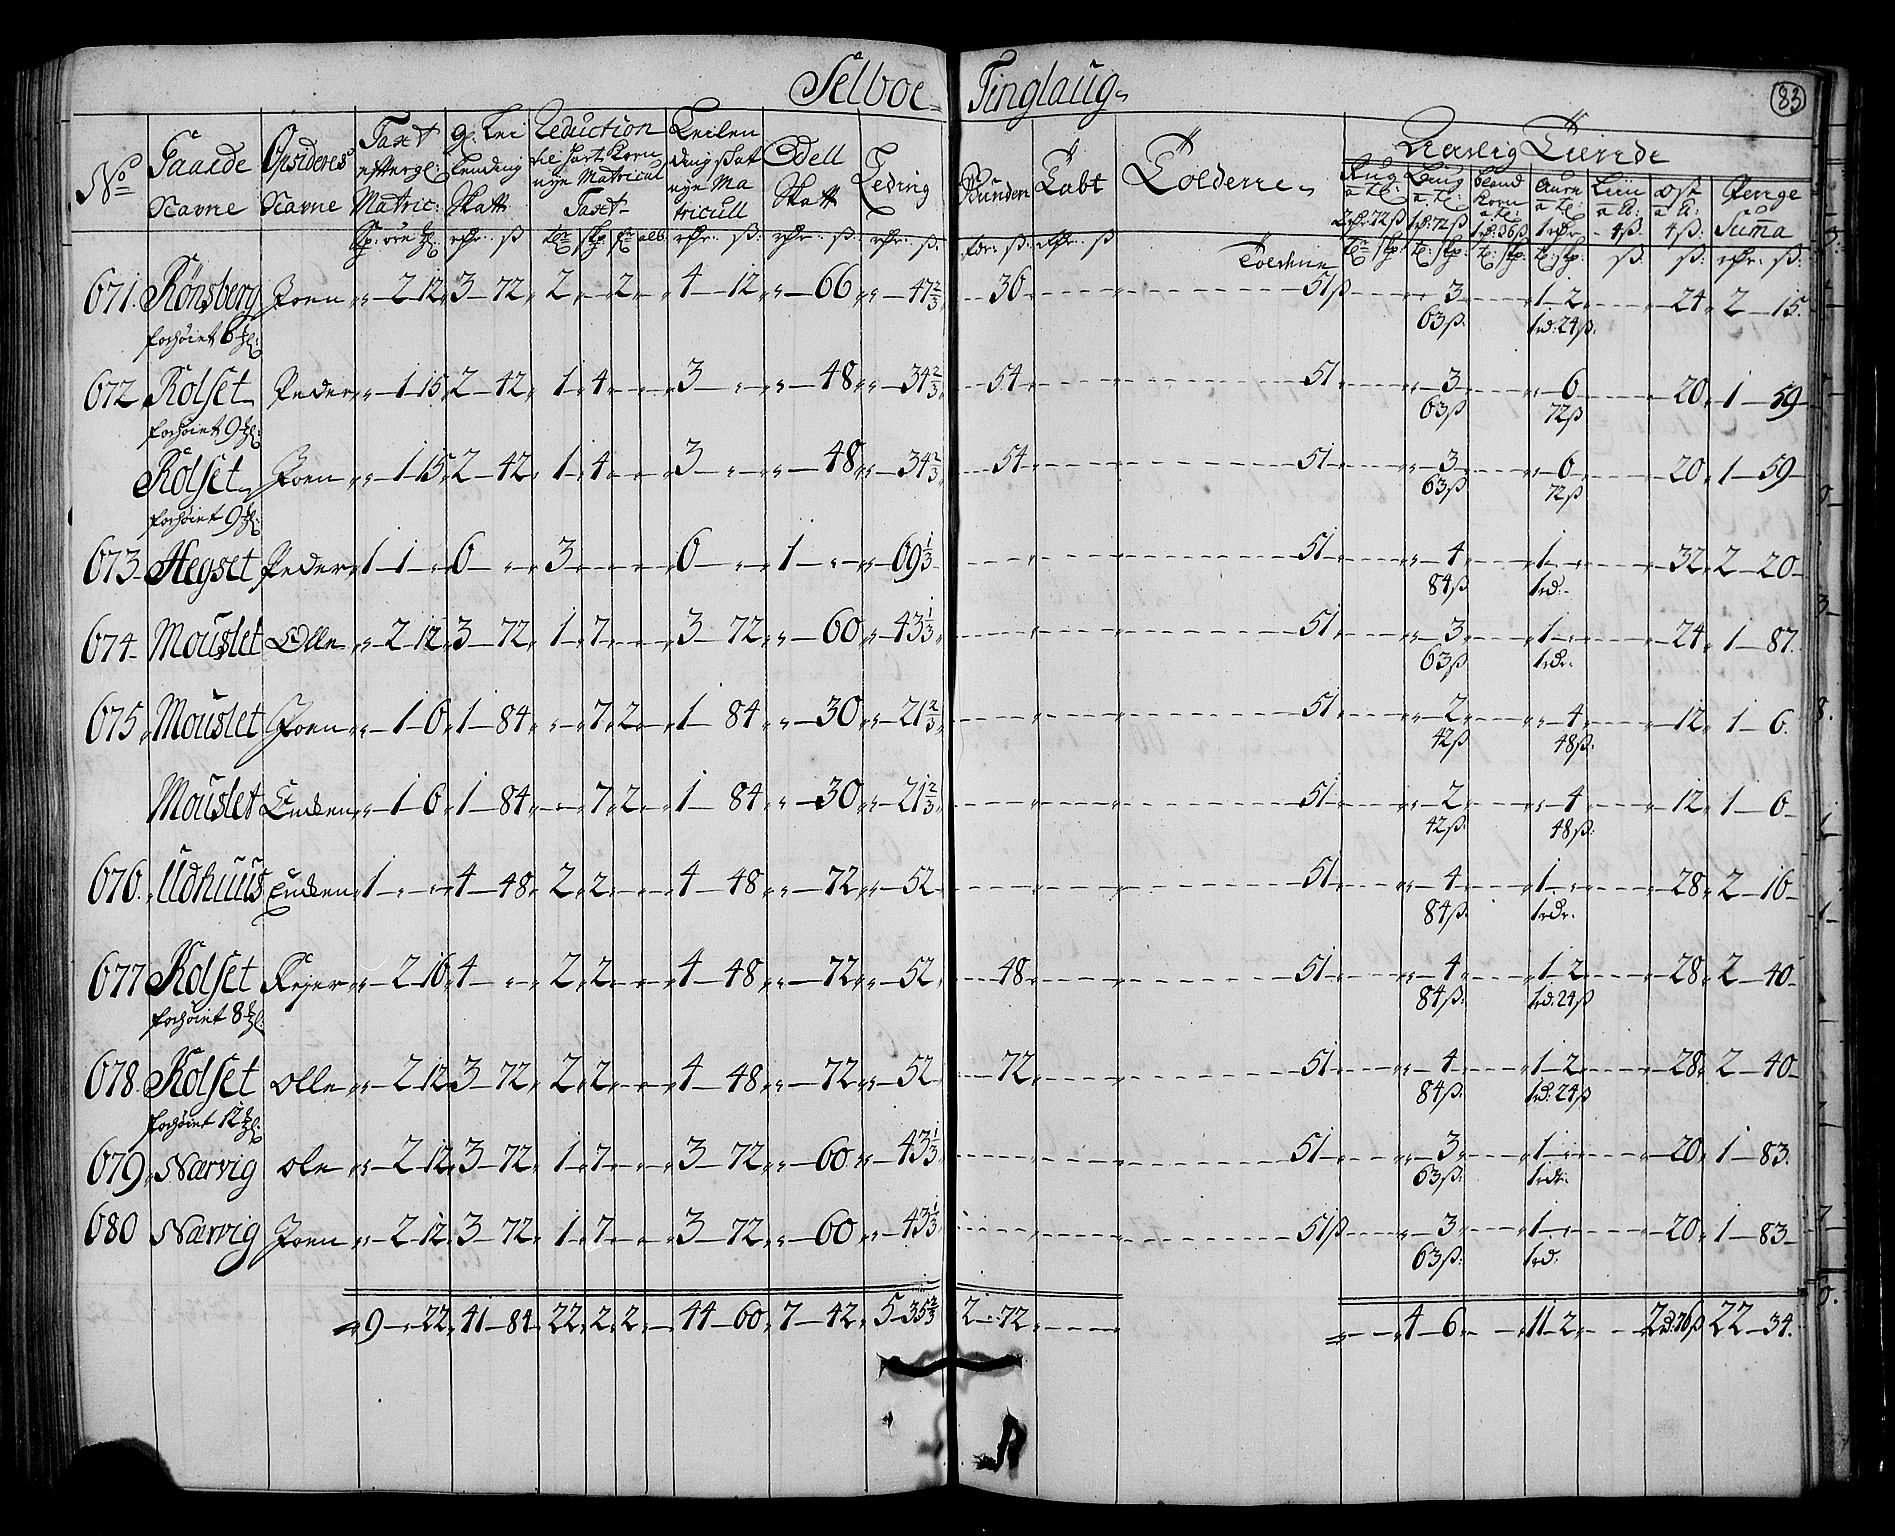 Selboe Tinglaug
83
No Gaarde Navne Opsideres Navne Taxt Matric: Skatt Reduction nye Matricul Taxt nye Matricull Odell Skatt Leding Tolderne Aarlig Tiende Penge Suma
671. Rönsberg Joen 2 12 3 72 2 2 4 12 66 47 2/3 30 51 ß 3 1 2 24 2 15.
forhöiet 6 63 ß 1 rd: 24 ß:
672 Rolset Peder 1 15 2 42 1 4 3 48 34 2/3 54 51 3 6 20 1 59
forhöiet 9 63 ß 72 ß
Rolset Joen 1 15 2 42 1 4 3 48 34 2/3 54 51 3 6 20 1 59
forhöiet 9 63 ß 72 ß
673 Hegset Peder 1 1 6 3 6 1 69 1/3 51 4 1 32 2 20
84 ß 1 rd:
674 Mouslet Olle 2 12 3 72 1 7 3 72 60 43 1/3 51 3 1 24 1 87.
63 ß 1 rdr.
675 Mouslet Joen 1 6 1 84 7 2 1 84 30 21 2/3 51 2 4 12 1 6.
42 ß 48 ß:
Mouslet 1 6 1 84 7 2 1 84 30 21 2/3 51 2 4 12 1 6
42 ß: 48 ß:
676. Udhuus 1 4 48 2 2 4 48 72 52 51 4 1 28 2 16
84 ß: 1 rdr.
677 Rolset 2 16 4 2 2 4 48 72 52 48 51 4 1 2 28 2 40
forhöiet 8 84 ß: 1 rd: 24 ß
678. Rolset Olle 2 12 3 72 2 2 4 48 72 52 72 51 4 1 2 28 2 40
forhöiet 12 84 ß: 1 rd: 24 ß
679 Nærvig Ole 2 12 3 72 1 7 3 72 60 43 1/3 51 3 1 20 1 83.
63 ß: 1 rdr.
680 Nærvig Joen 2 12 3 72 1 7 3 72 60 43 1/3 51 ß 3 1 20 1 83
63 ß: 1 rd.
9 22 41 84 22 2 2 44 60 7 42 5 35 2/3 2 72 4 6 11 2 22 34.